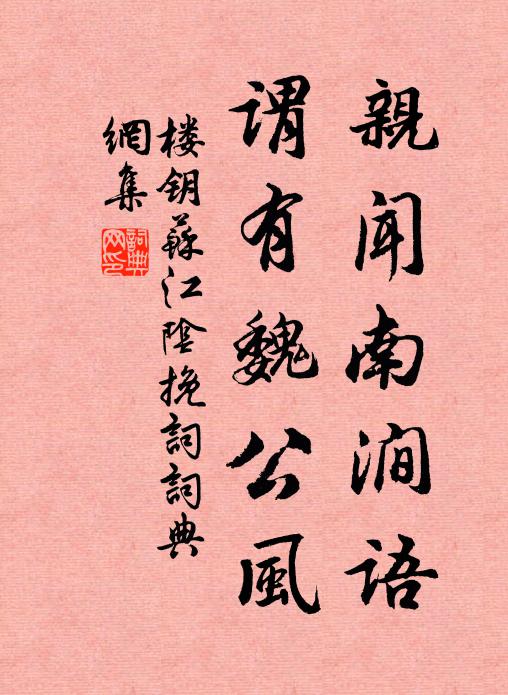 親闻南澗语
谓有魏公風
楼钥蘇江陰挽詞詞典
網集
詞典網印